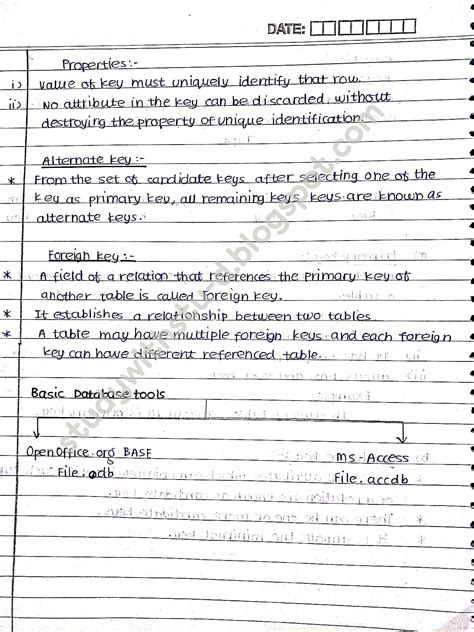 DATE:
Properties:-
i) Value of key must uniquely identify that row.
ii) No attribute in the key can be discarded, without
destroying the property of unique identification.
Alternate key:-
* From the set of candidate keys after selecting one of the
key as primary key, all remaining keys keys are known as
alternate keys.
Foreign key:-
* A field of a relation that references the primary key of
another table is called foreign key.
* It establishes a relationship between two tables.
* A table may have multiple foreign keys and each foreign
key can have different referenced table.
Basic Database tools
OpenOffice.org BASE MS-Access
File: odb File. accdb
studywithstu-d.blogspot.com